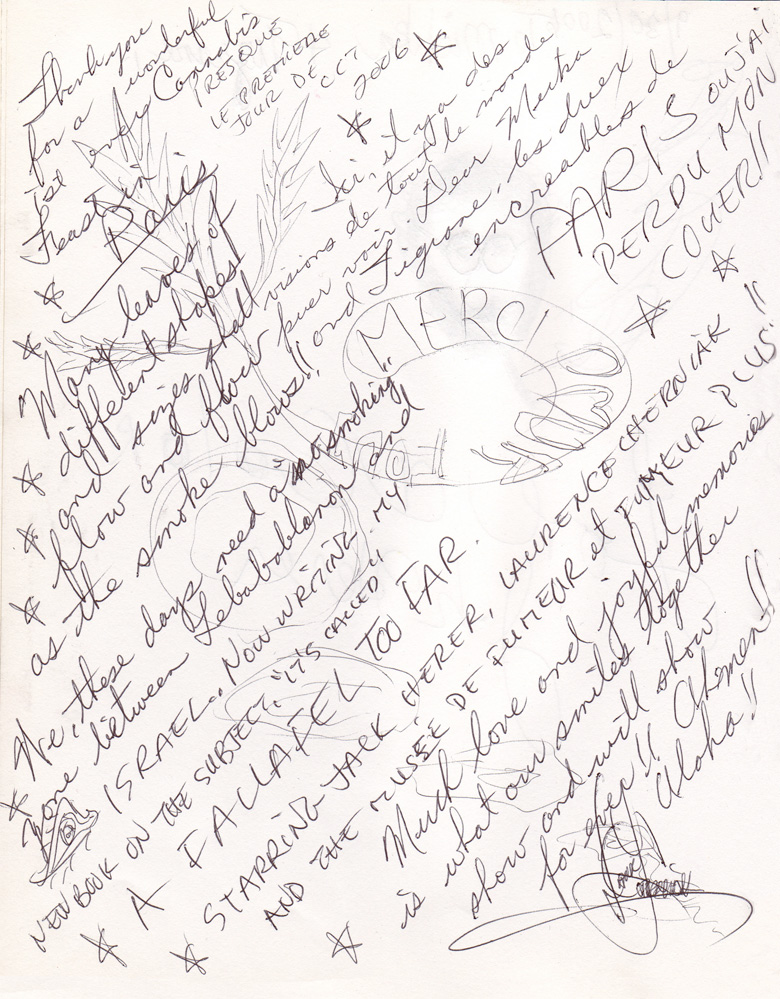 Thank you
for a wonderful
1st ever Cannabis
Feast in
Paris
PRESQUE
LE PREMIÈRE
JOUR DE
OCT
2006
Many leaves of
different shapes
and sizes shall
flow and flow
as the smoke blows!!
Ici, il ya des
visions de tout le monde
puer voir. Dear Mestra
and Tigrane, les duex
encreables de
PARIS OU J'AI
PERDU MON
COUER!!
MERCI POUR
TOUT
We, these days need a no smoking
zone between Lebabablanon and
ISRAEL.. NOW WRITING MY
NEW BOOK ON THE SUBJECT. "IT'S CALLED"
A FALLAFEL TOO FAR.
STARRING JACK HERER, LAURENCE CHERNIAK !!
AND THE MUSÉE DE FUMEUR et FUMEUR PLUS
Much love and joyful memories
is what our smiles together
show and will show
for ever!! Ahmen!!
Aloha!!